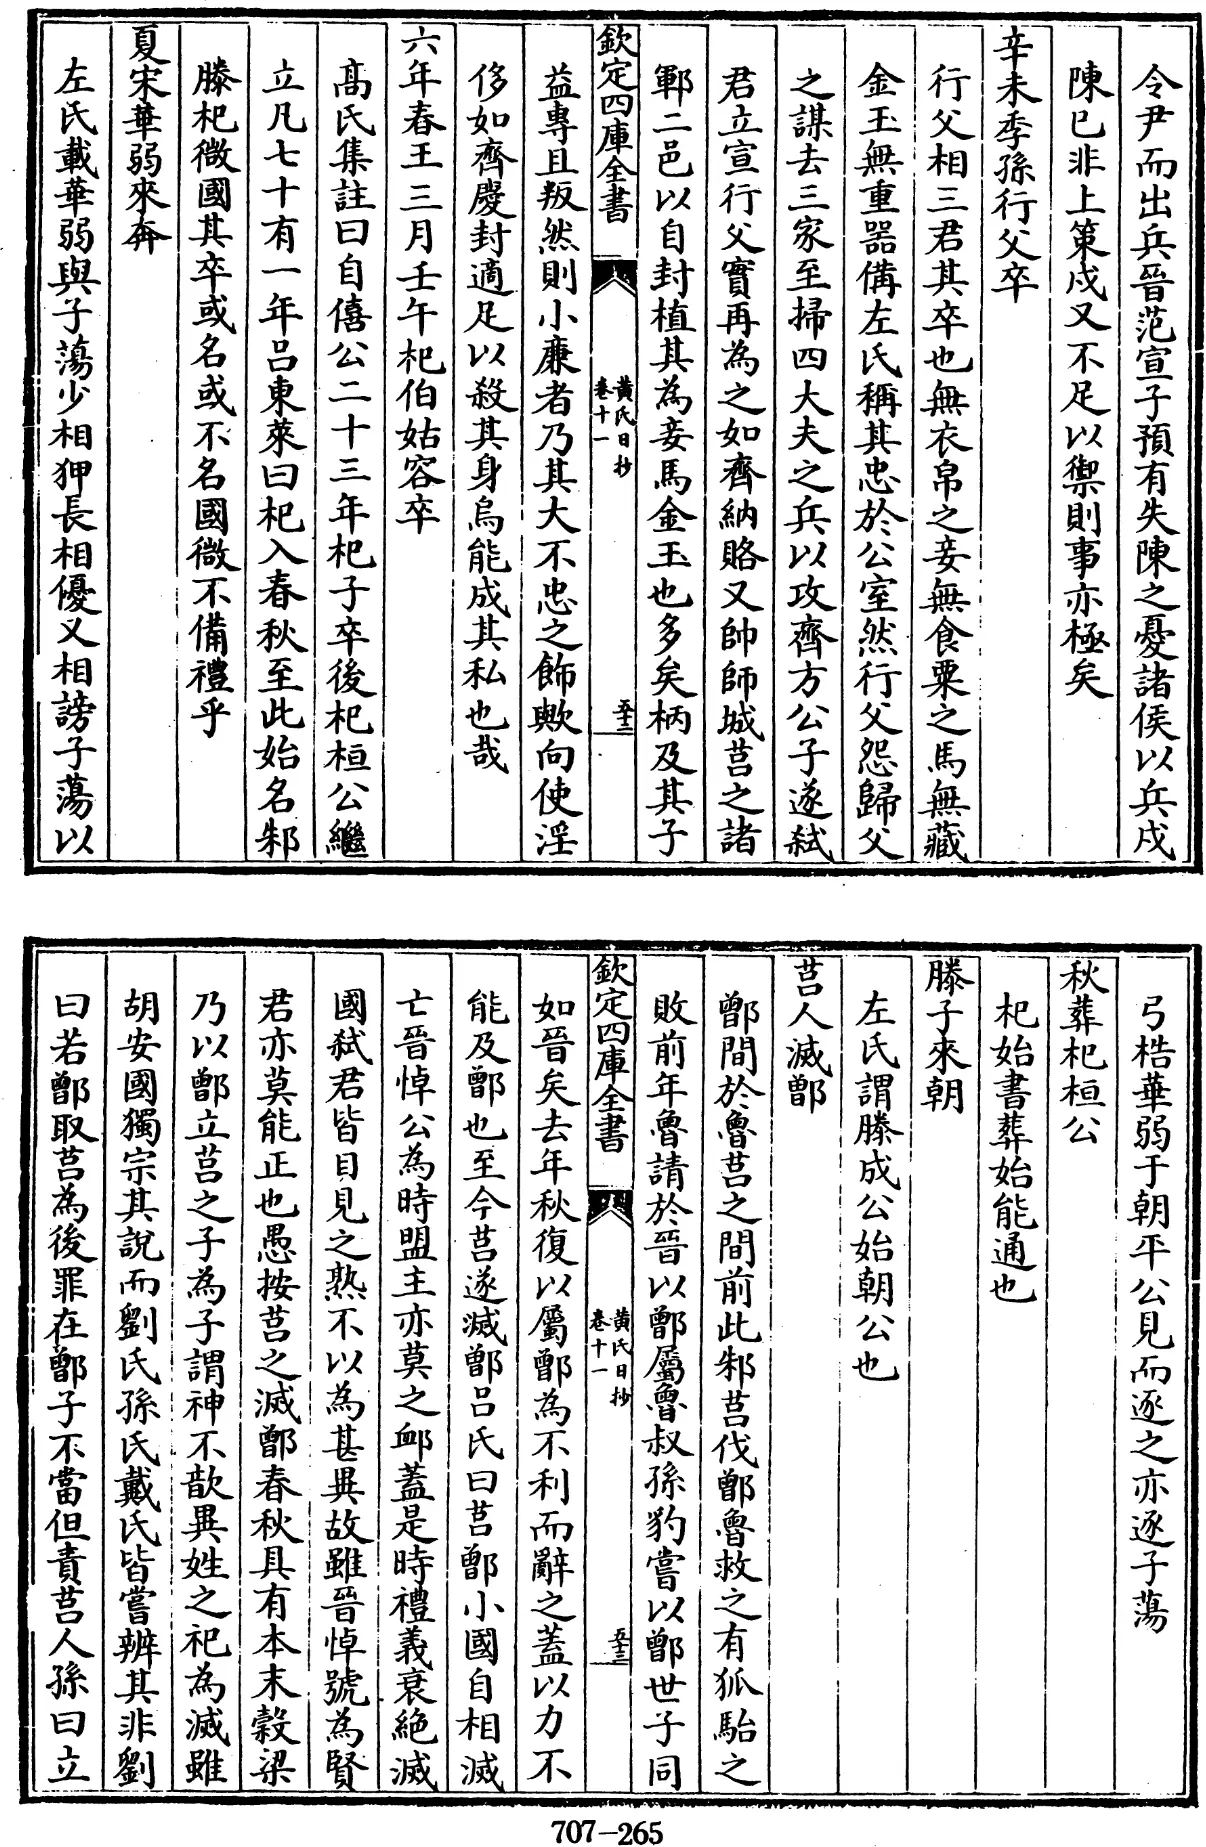 令尹而出兵晉范宣子預有失陳之憂諸侯以兵戍
陳已非上策戍又不足以禦則事亦極矣
辛未季孫行父卒
行父相三君其卒也無衣帛之妾無食粟之馬無藏
金玉無重器備左氏稱其忠於公室然行父怨歸父
之謀去三家至掃四大夫之兵以攻齊方公子遂弑
君立宣行父實再為之如齊納賂又帥師城莒之諸
鄆二邑以自封植其為妾馬金玉也多矣柄及其子
欽定四庫全書
黃氏日抄
卷十一
五十二
益專且叛然則小廉者乃其大不忠之飾歟向使淫
侈如齊慶封適足以殺其身烏能成其私也哉
六年春王三月壬午杞伯姑容卒
髙氏集註曰自僖公二十三年杞子卒後杞桓公繼
立凡七十有一年吕東萊曰杞入春秋至此始名邾
滕杞微國其卒或名或不名國微不備禮乎
夏宋華弱來奔
左氏載華弱與子蕩少相狎長相優又相謗子蕩以
弓梏華弱于朝平公見而逐之亦逐子蕩
秋葬杞桓公
杞始書葬始能通也
滕子來朝
左氏謂滕成公始朝公也
莒人滅鄫
鄫間於魯莒之間前此邾莒伐鄫魯救之有狐駘之
敗前年魯請於晉以鄫屬魯叔孫豹嘗以鄫世子同
欽定四庫全書
黃氏日抄
卷十一
五十三
如晉矣去年秋復以屬鄫為不利而辭之蓋以力不
能及鄫也至今莒遂滅鄫吕氏曰莒鄫小國自相滅
亡晉悼公為時盟主亦莫之䘏蓋是時禮義衰絶滅
國弑君皆目見之熟不以為甚異故雖晉悼號為賢
君亦莫能正也愚按莒之滅鄫春秋具有本末穀梁
乃以鄫立莒之子為子謂神不歆異姓之祀為滅雖
胡安國獨宗其說而劉氏孫氏戴氏皆嘗辨其非劉
曰若鄫取莒為後罪在鄫子不當但責莒人孫曰立
707-265